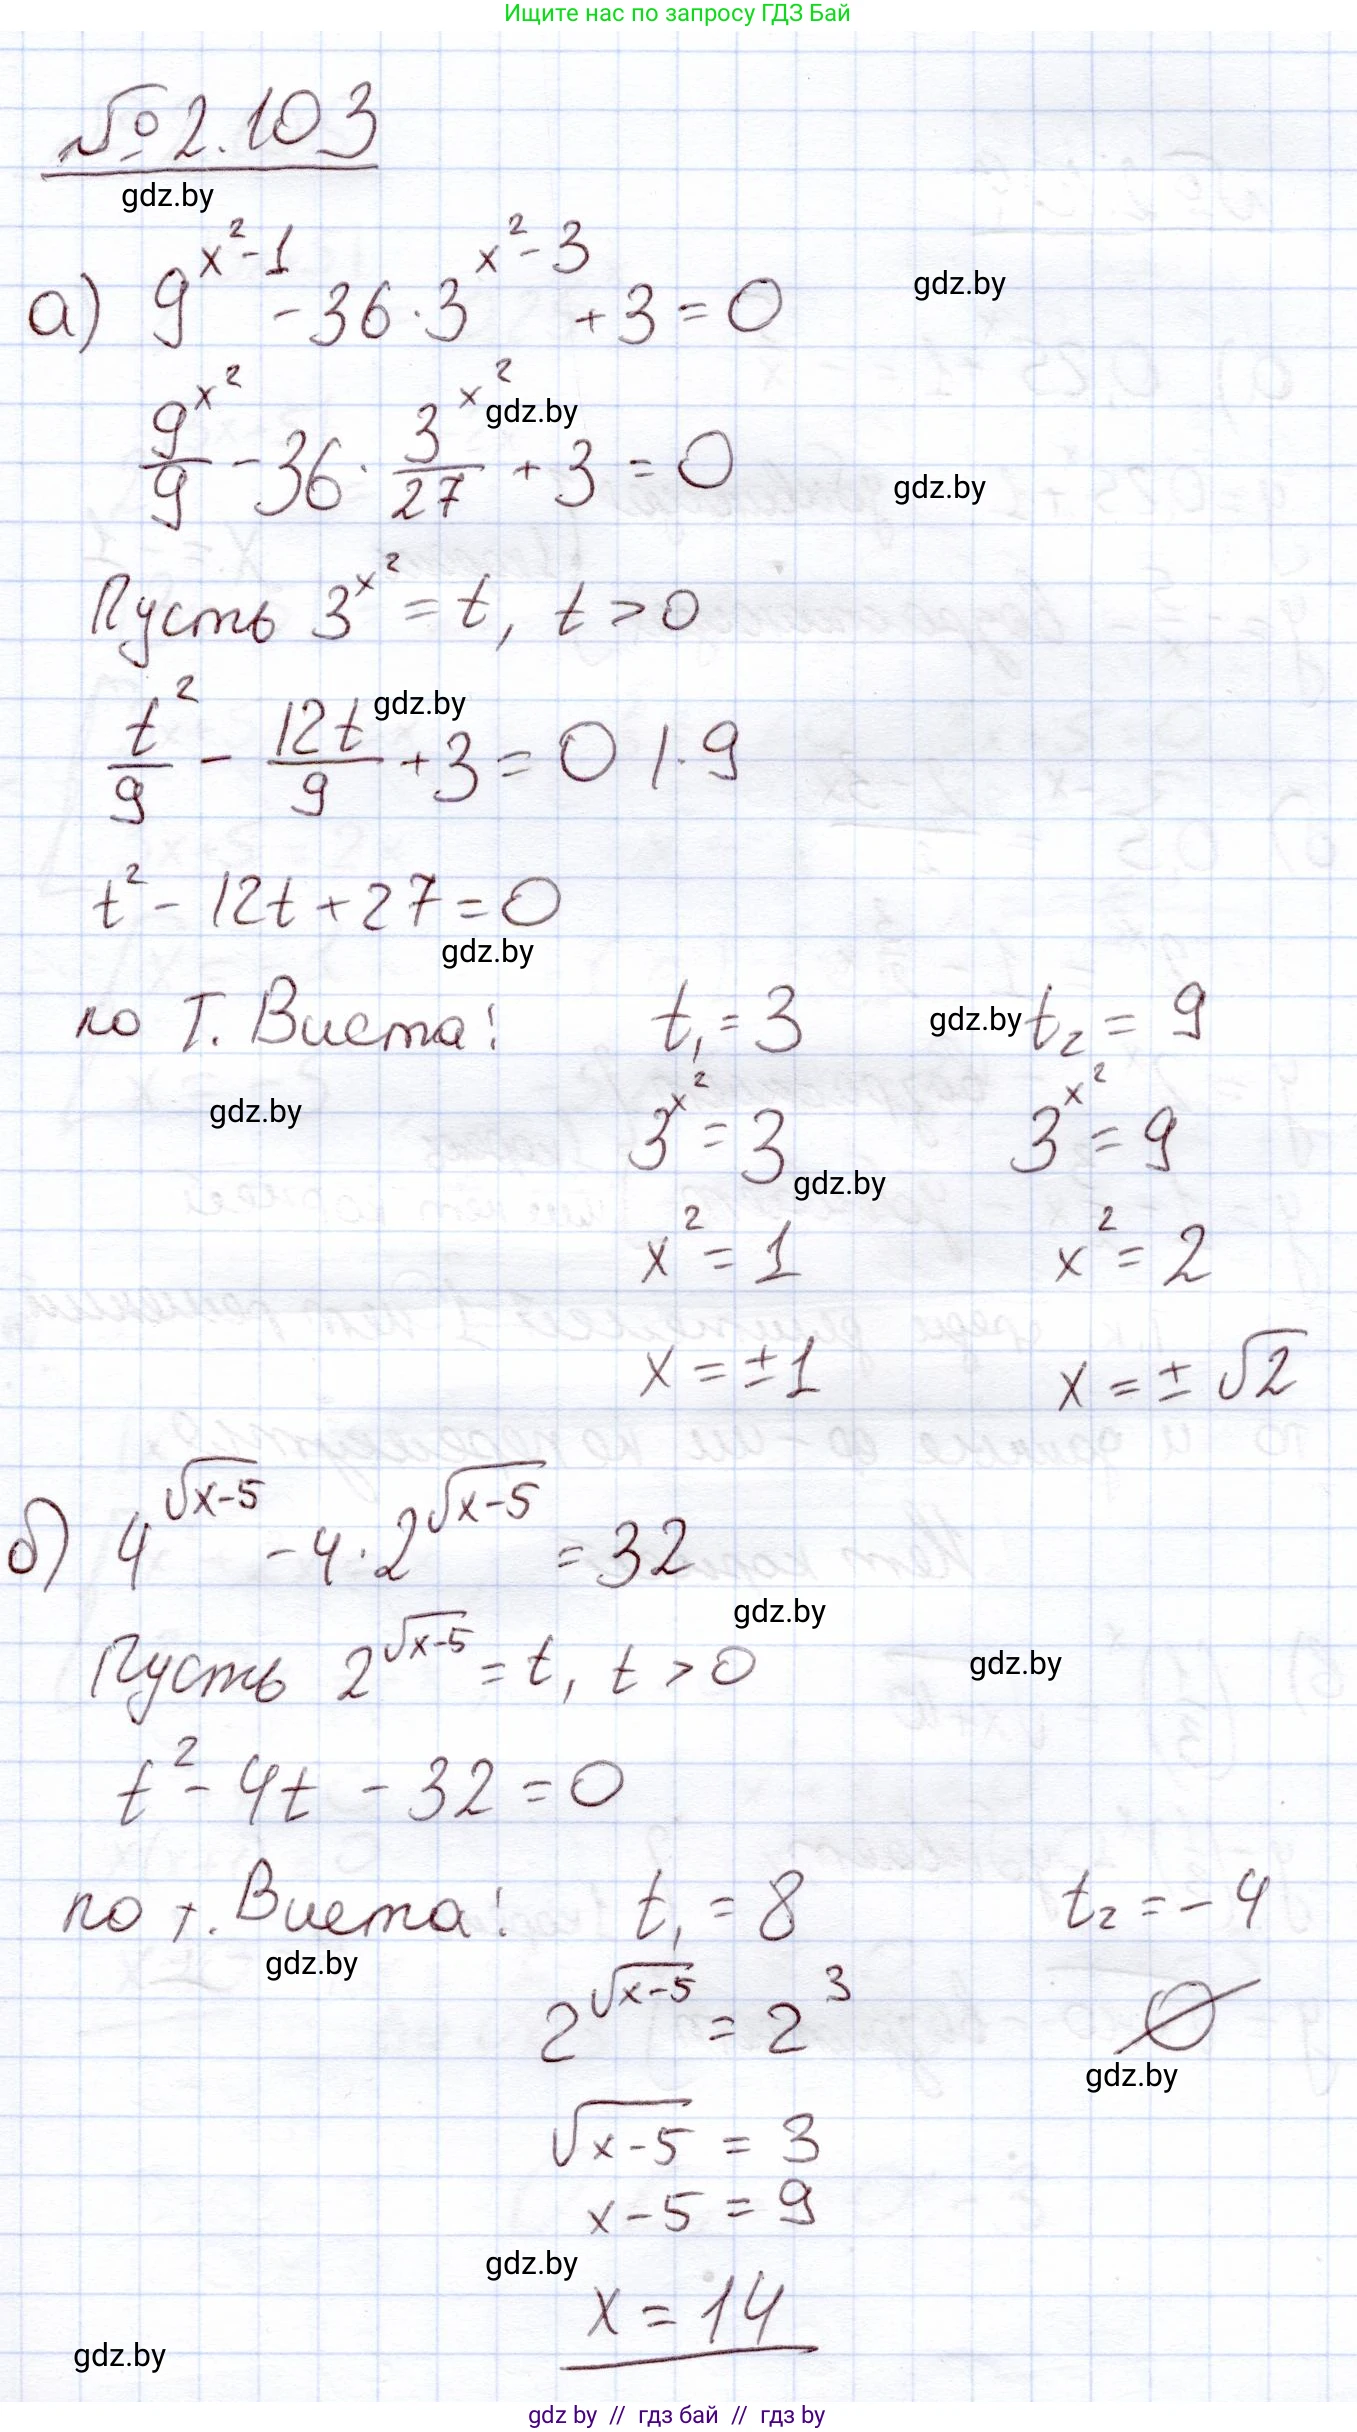 Ищите нас по запросу ГДЗ Бай
№ 2.103
gdz.by
а) 9^{x²-1} - 36·3^{x²-3} + 3 = 0
gdz.by
9^{x²}/9 - 36·3^{x²}/27 + 3 = 0
gdz.by
gdz.by
Пусть 3^{x²} = t, t > 0
t²/9 - 12t/9 + 3 = 0 |·9
gdz.by
t² - 12t + 27 = 0
gdz.by
по Т. Виета: t₁ = 3 t₂ = 9
gdz.by
gdz.by
3^{x²} = 3 3^{x²} = 9
gdz.by
x² = 1 x² = 2
x = ±1 x = ±√2
б) 4^{√(x-5)} - 4·2^{√(x-5)} = 32
gdz.by
Пусть 2^{√(x-5)} = t, t > 0
gdz.by
t² - 4t - 32 = 0
по т. Виета: t₁ = 8 t₂ = -4
gdz.by
2^{√(x-5)} = 2³ ∅
gdz.by
√(x-5) = 3
x - 5 = 9
gdz.by
x = 14
gdz.by
gdz by // гдз бай // гдз by